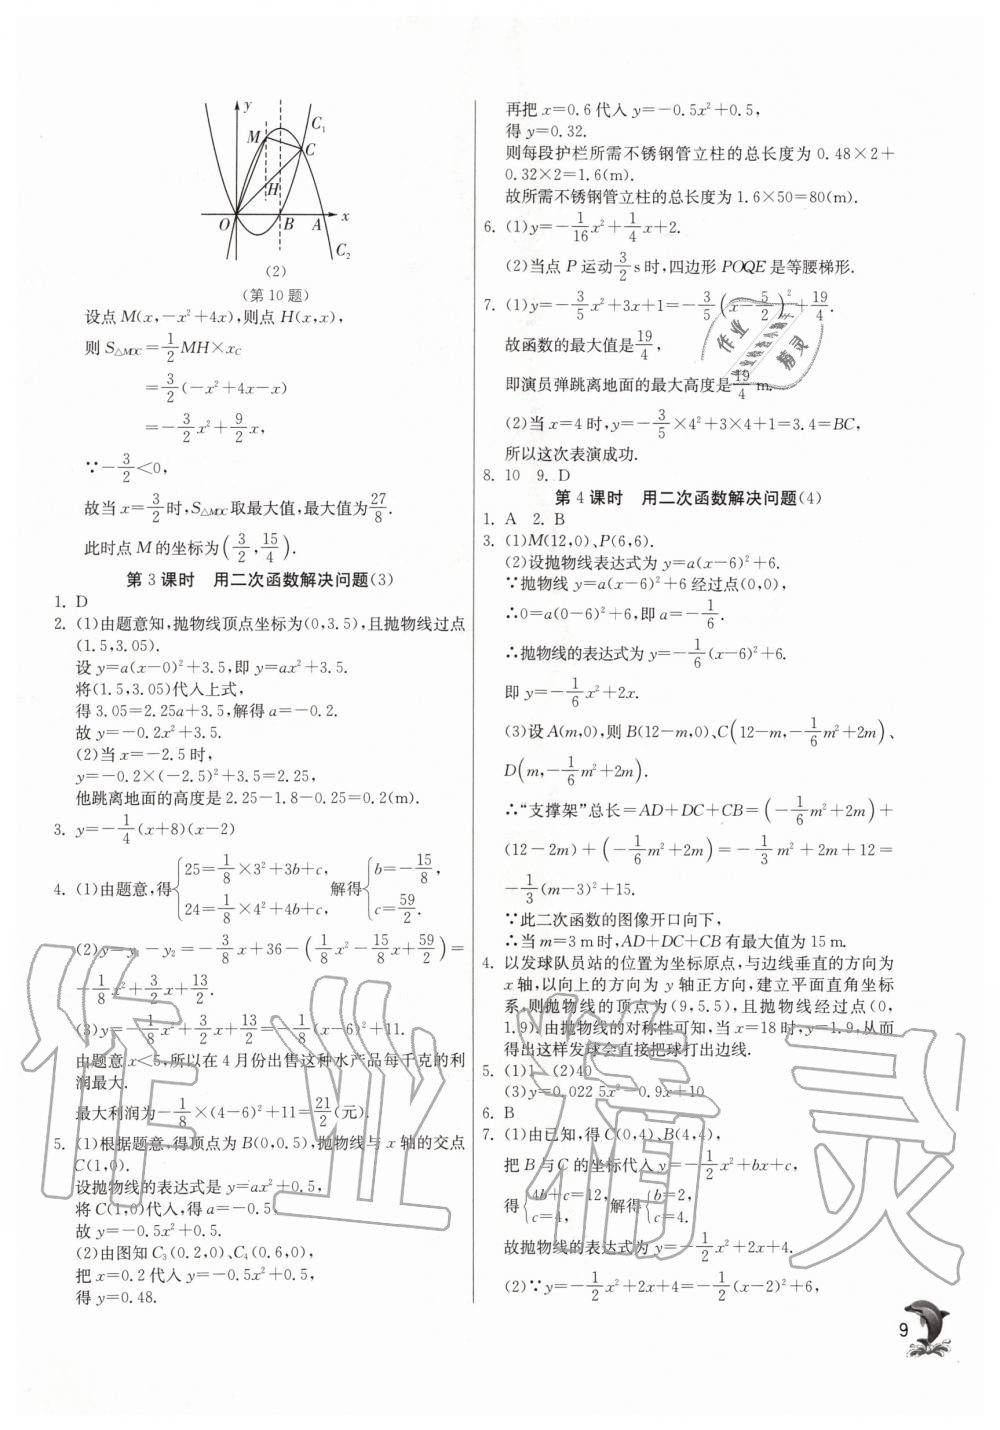 y
M
C₁
C
H
O
B
A
x
C₂
(2)
(第10题)
设点M(x,-x²+4x),则点H(x,x),
则S△MOC=1/2 MH×x_C
=3/2(-x²+4x-x)
=-3/2 x²+9/2 x,
∵-3/2<0,
故当x=3/2时,S△MOC取最大值,最大值为27/8.
此时点M的坐标为(3/2,15/4).
第3课时 用二次函数解决问题(3)
1. D
2. (1)由题意知,抛物线顶点坐标为(0,3.5),且抛物线过点
(1.5,3.05).
设y=a(x-0)²+3.5,即y=ax²+3.5.
将(1.5,3.05)代入上式,
得3.05=2.25a+3.5,解得a=-0.2.
故y=-0.2x²+3.5.
(2)当x=-2.5时,
y=-0.2×(-2.5)²+3.5=2.25,
他跳离地面的高度是2.25-1.8-0.25=0.2(m).
3. y=-1/4(x+8)(x-2)
4. (1)由题意,得{25=1/8×3²+3b+c, 24=1/8×4²+4b+c, 解得{b=-15/8, c=59/2.
(2)y=y₁-y₂=-3/8 x+36-(1/8 x²-15/8 x+59/2)=
-1/8 x²+3/2 x+13/2.
(3)y=-1/8 x²+3/2 x+13/2=-1/8(x-6)²+11.
由题意x<5,所以在4月份出售这种水产品每千克的利
润最大.
最大利润为-1/8×(4-6)²+11=21/2(元).
5. (1)根据题意,得顶点为B(0,0.5),抛物线与x轴的交点
C(1,0).
设抛物线的表达式是y=ax²+0.5,
将C(1,0)代入,得a=-0.5.
故y=-0.5x²+0.5.
(2)由图知C₃(0.2,0)、C₄(0.6,0),
把x=0.2代入y=-0.5x²+0.5,
得y=0.48.
再把x=0.6代入y=-0.5x²+0.5,
得y=0.32.
则每段护栏所需不锈钢管立柱的总长度为0.48×2+
0.32×2=1.6(m).
故所需不锈钢管立柱的总长度为1.6×50=80(m).
6. (1)y=-1/16 x²+1/4 x+2.
(2)当点P运动3/2 s时,四边形POQE是等腰梯形.
7. (1)y=-3/5 x²+3x+1=-3/5(x-5/2)²+19/4.
故函数的最大值是19/4,
即演员弹跳离地面的最大高度是19/4 m.
(2)当x=4时,y=-3/5×4²+3×4+1=3.4=BC,
所以这次表演成功.
8. 10 9. D
第4课时 用二次函数解决问题(4)
1. A 2. B
3. (1)M(12,0)、P(6,6).
(2)设抛物线表达式为y=a(x-6)²+6.
∵抛物线y=a(x-6)²+6经过点(0,0),
∴0=a(0-6)²+6,即a=-1/6.
∴抛物线的表达式为y=-1/6(x-6)²+6.
即y=-1/6 x²+2x.
(3)设A(m,0),则B(12-m,0)、C(12-m,-1/6 m²+2m)、
D(m,-1/6 m²+2m).
∴“支撑架”总长=AD+DC+CB=(-1/6 m²+2m)+
(12-2m)+(-1/6 m²+2m)=-1/3 m²+2m+12=
-1/3(m-3)²+15.
∵此二次函数的图像开口向下,
∴当m=3 m时,AD+DC+CB有最大值为15 m.
4. 以发球队员站的位置为坐标原点,与边线垂直的方向为
x轴,以向上的方向为y轴正方向,建立平面直角坐标
系,则抛物线的顶点为(9,5.5),且抛物线经过点(0,
1.9).由抛物线的对称性可知,当x=18时,y=1.9,从而
得出这样发球会直接把球打出边线.
5. (1)1 (2)40
(3)y=0.022 5x²-0.9x+10
6. B
7. (1)由已知,得C(0,4)、B(4,4),
把B与C的坐标代入y=-1/2 x²+bx+c,
得{4b+c=12, c=4, 解得{b=2, c=4.
故抛物线的表达式为y=-1/2 x²+2x+4.
(2)∵y=-1/2 x²+2x+4=-1/2(x-2)²+6,
9
作业
精灵
作业精灵